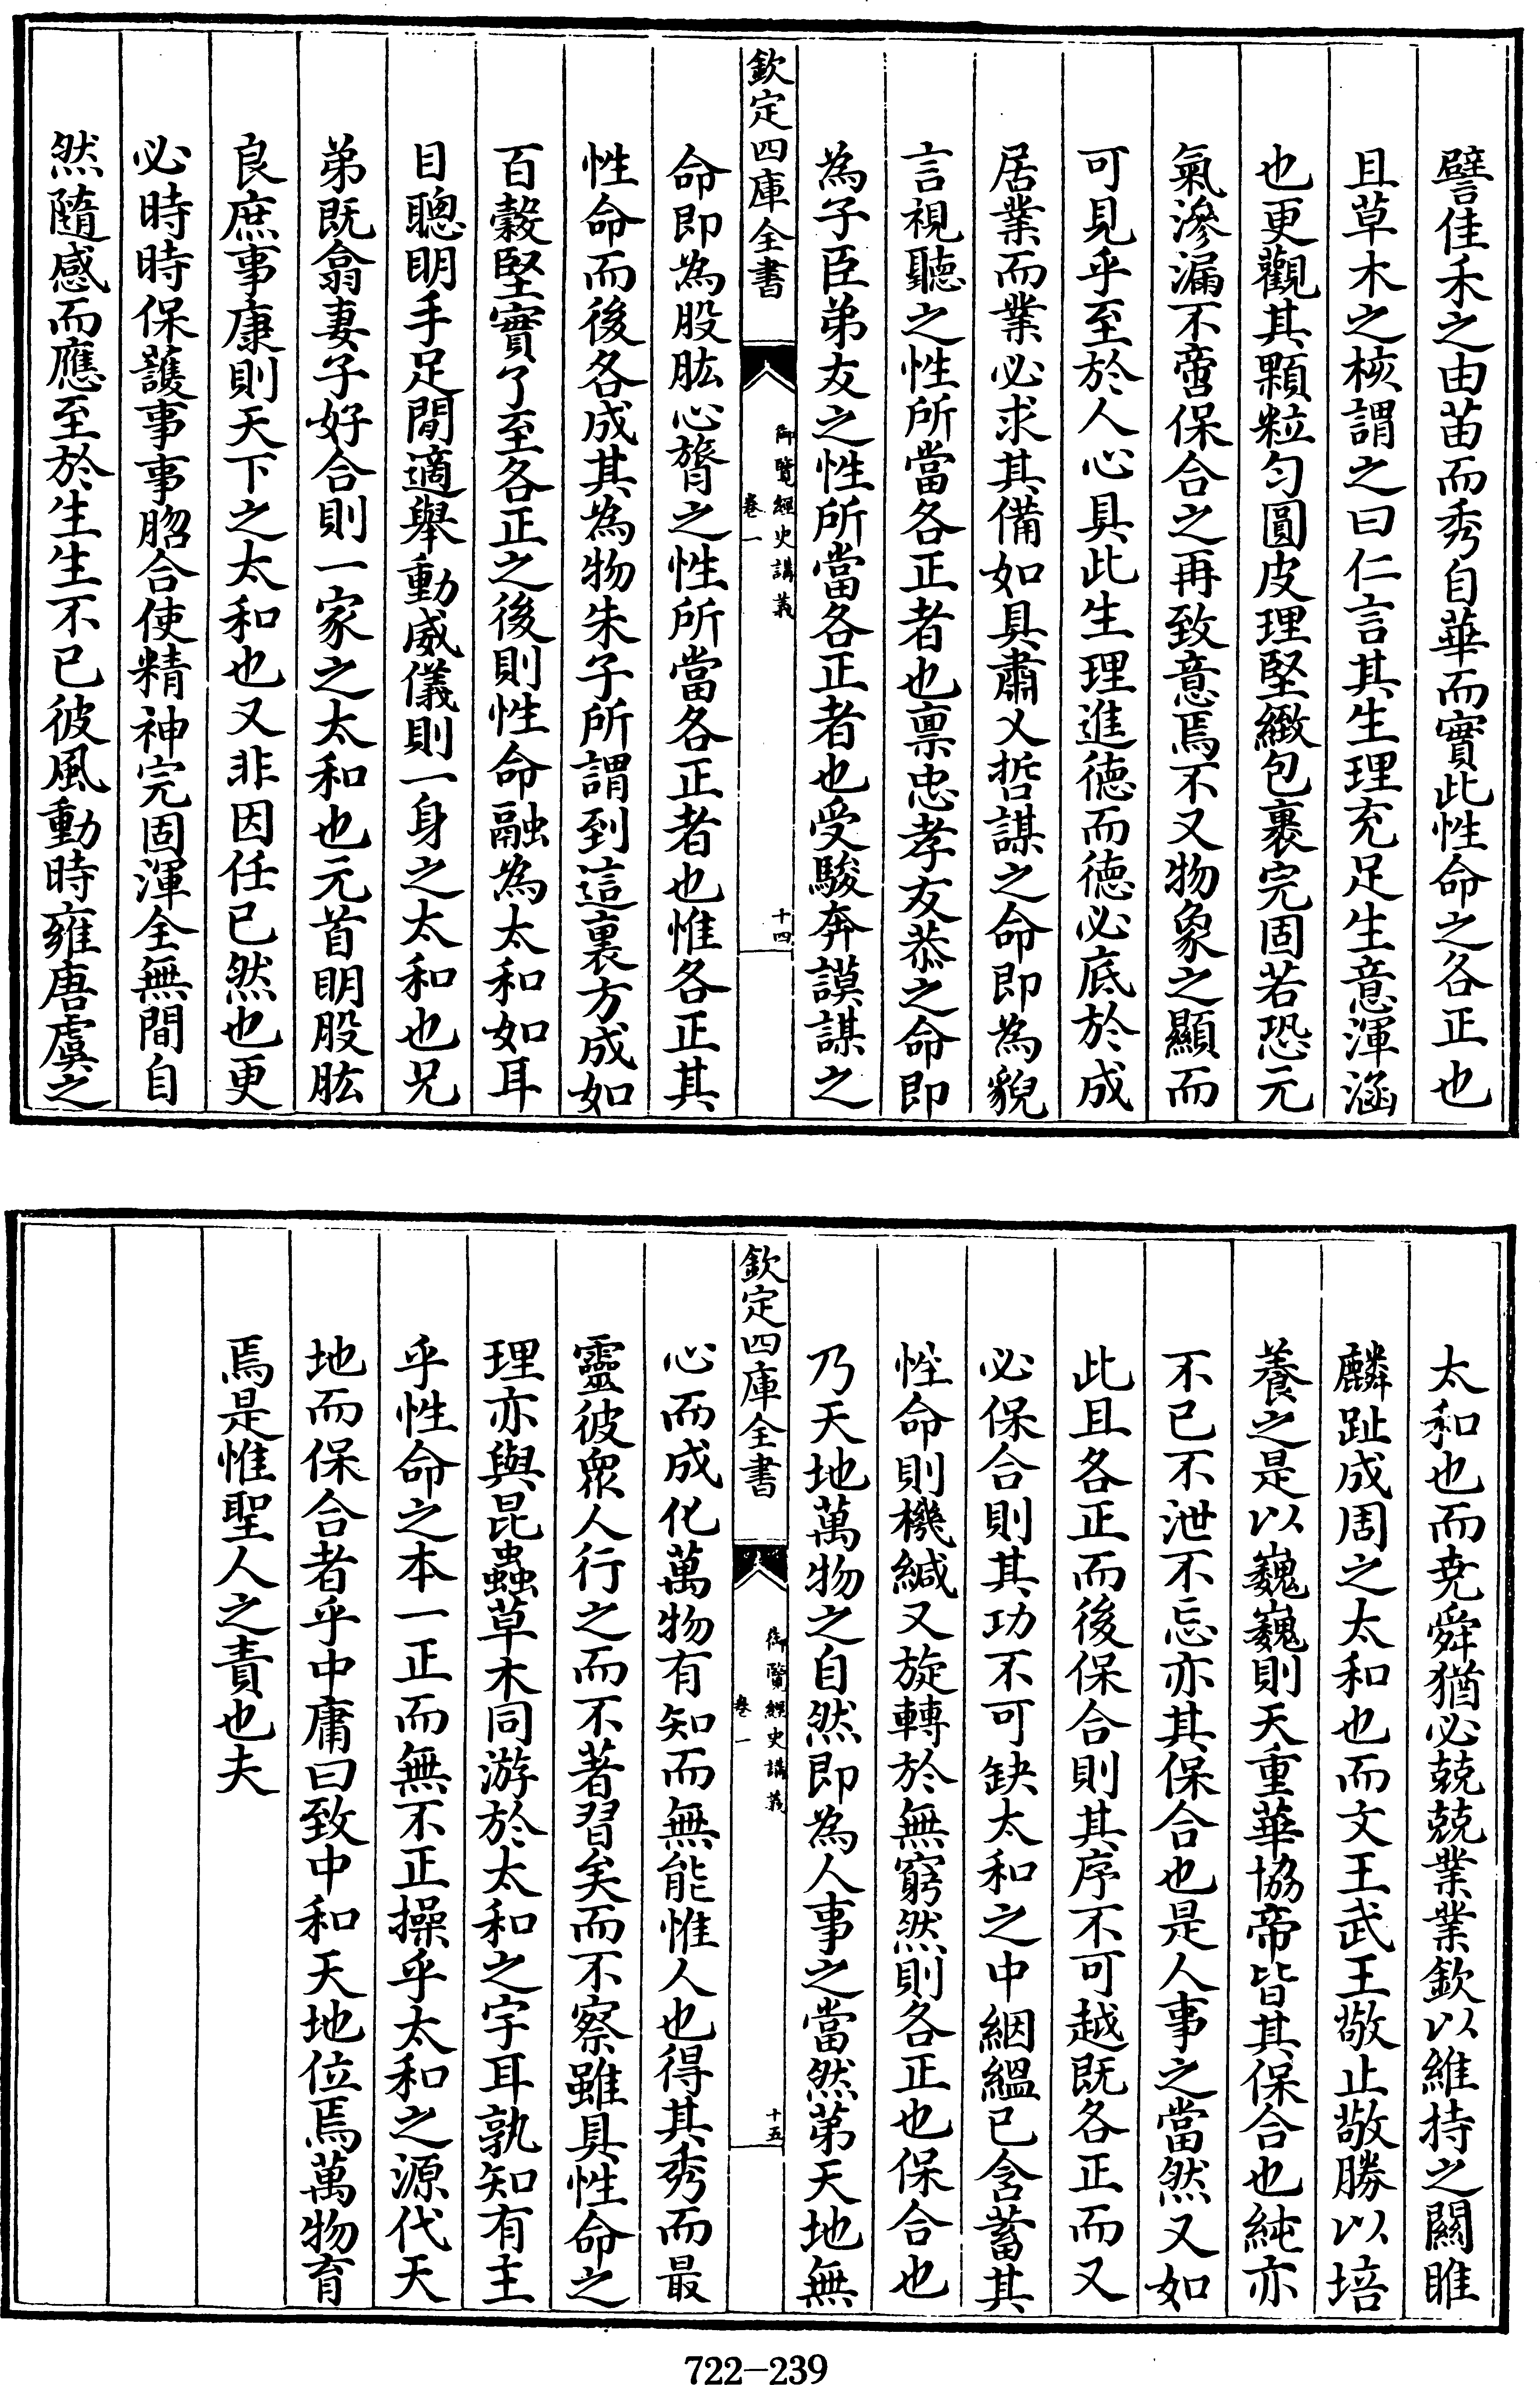 譬佳禾之由苗而秀自華而實此性命之各正也
且草木之核謂之曰仁言其生理充足生意渾涵
也更觀其顆粒匀圓皮理堅緻包裹完固若恐元
氣滲漏不啻保合之再致意焉不又物象之顯而
可見乎至於人心具此生理進徳而徳必底於成
居業而業必求其備如具肅乂哲謀之命即為貌
言視聽之性所當各正者也禀忠孝友恭之命即
為子臣弟友之性所當各正者也受駿奔謨謀之
欽定四庫全書
御覽經史講義
卷一
十四
命即為股肱心膂之性所當各正者也惟各正其
性命而後各成其為物朱子所謂到這裏方成如
百穀堅實了至各正之後則性命融為太和如耳
目聰明手足閒適舉動威儀則一身之太和也兄
弟既翕妻子好合則一家之太和也元首明股肱
良庶事康則天下之太和也又非因任已然也更
必時時保護事事脗合使精神完固渾全無間自
然隨感而應至於生生不已彼風動時雍唐虞之
太和也而尭舜猶必兢兢業業欽以維持之關雎
麟趾成周之太和也而文王武王敬止敬勝以培
養之是以巍巍則天重華協帝皆其保合也純亦
不已不泄不忘亦其保合也是人事之當然又如
此且各正而後保合則其序不可越既各正而又
必保合則其功不可缺太和之中絪縕已含蓄其
性命則機緘又旋轉於無窮然則各正也保合也
乃天地萬物之自然即為人事之當然第天地無
欽定四庫全書
御覽經史講義
卷一
十五
心而成化萬物有知而無能惟人也得其秀而最
靈彼衆人行之而不著習矣而不察雖具性命之
理亦與昆蟲草木同游於太和之宇耳孰知有主
乎性命之本一正而無不正操乎太和之源代天
地而保合者乎中庸曰致中和天地位焉萬物育
焉是惟聖人之責也夫
722-239